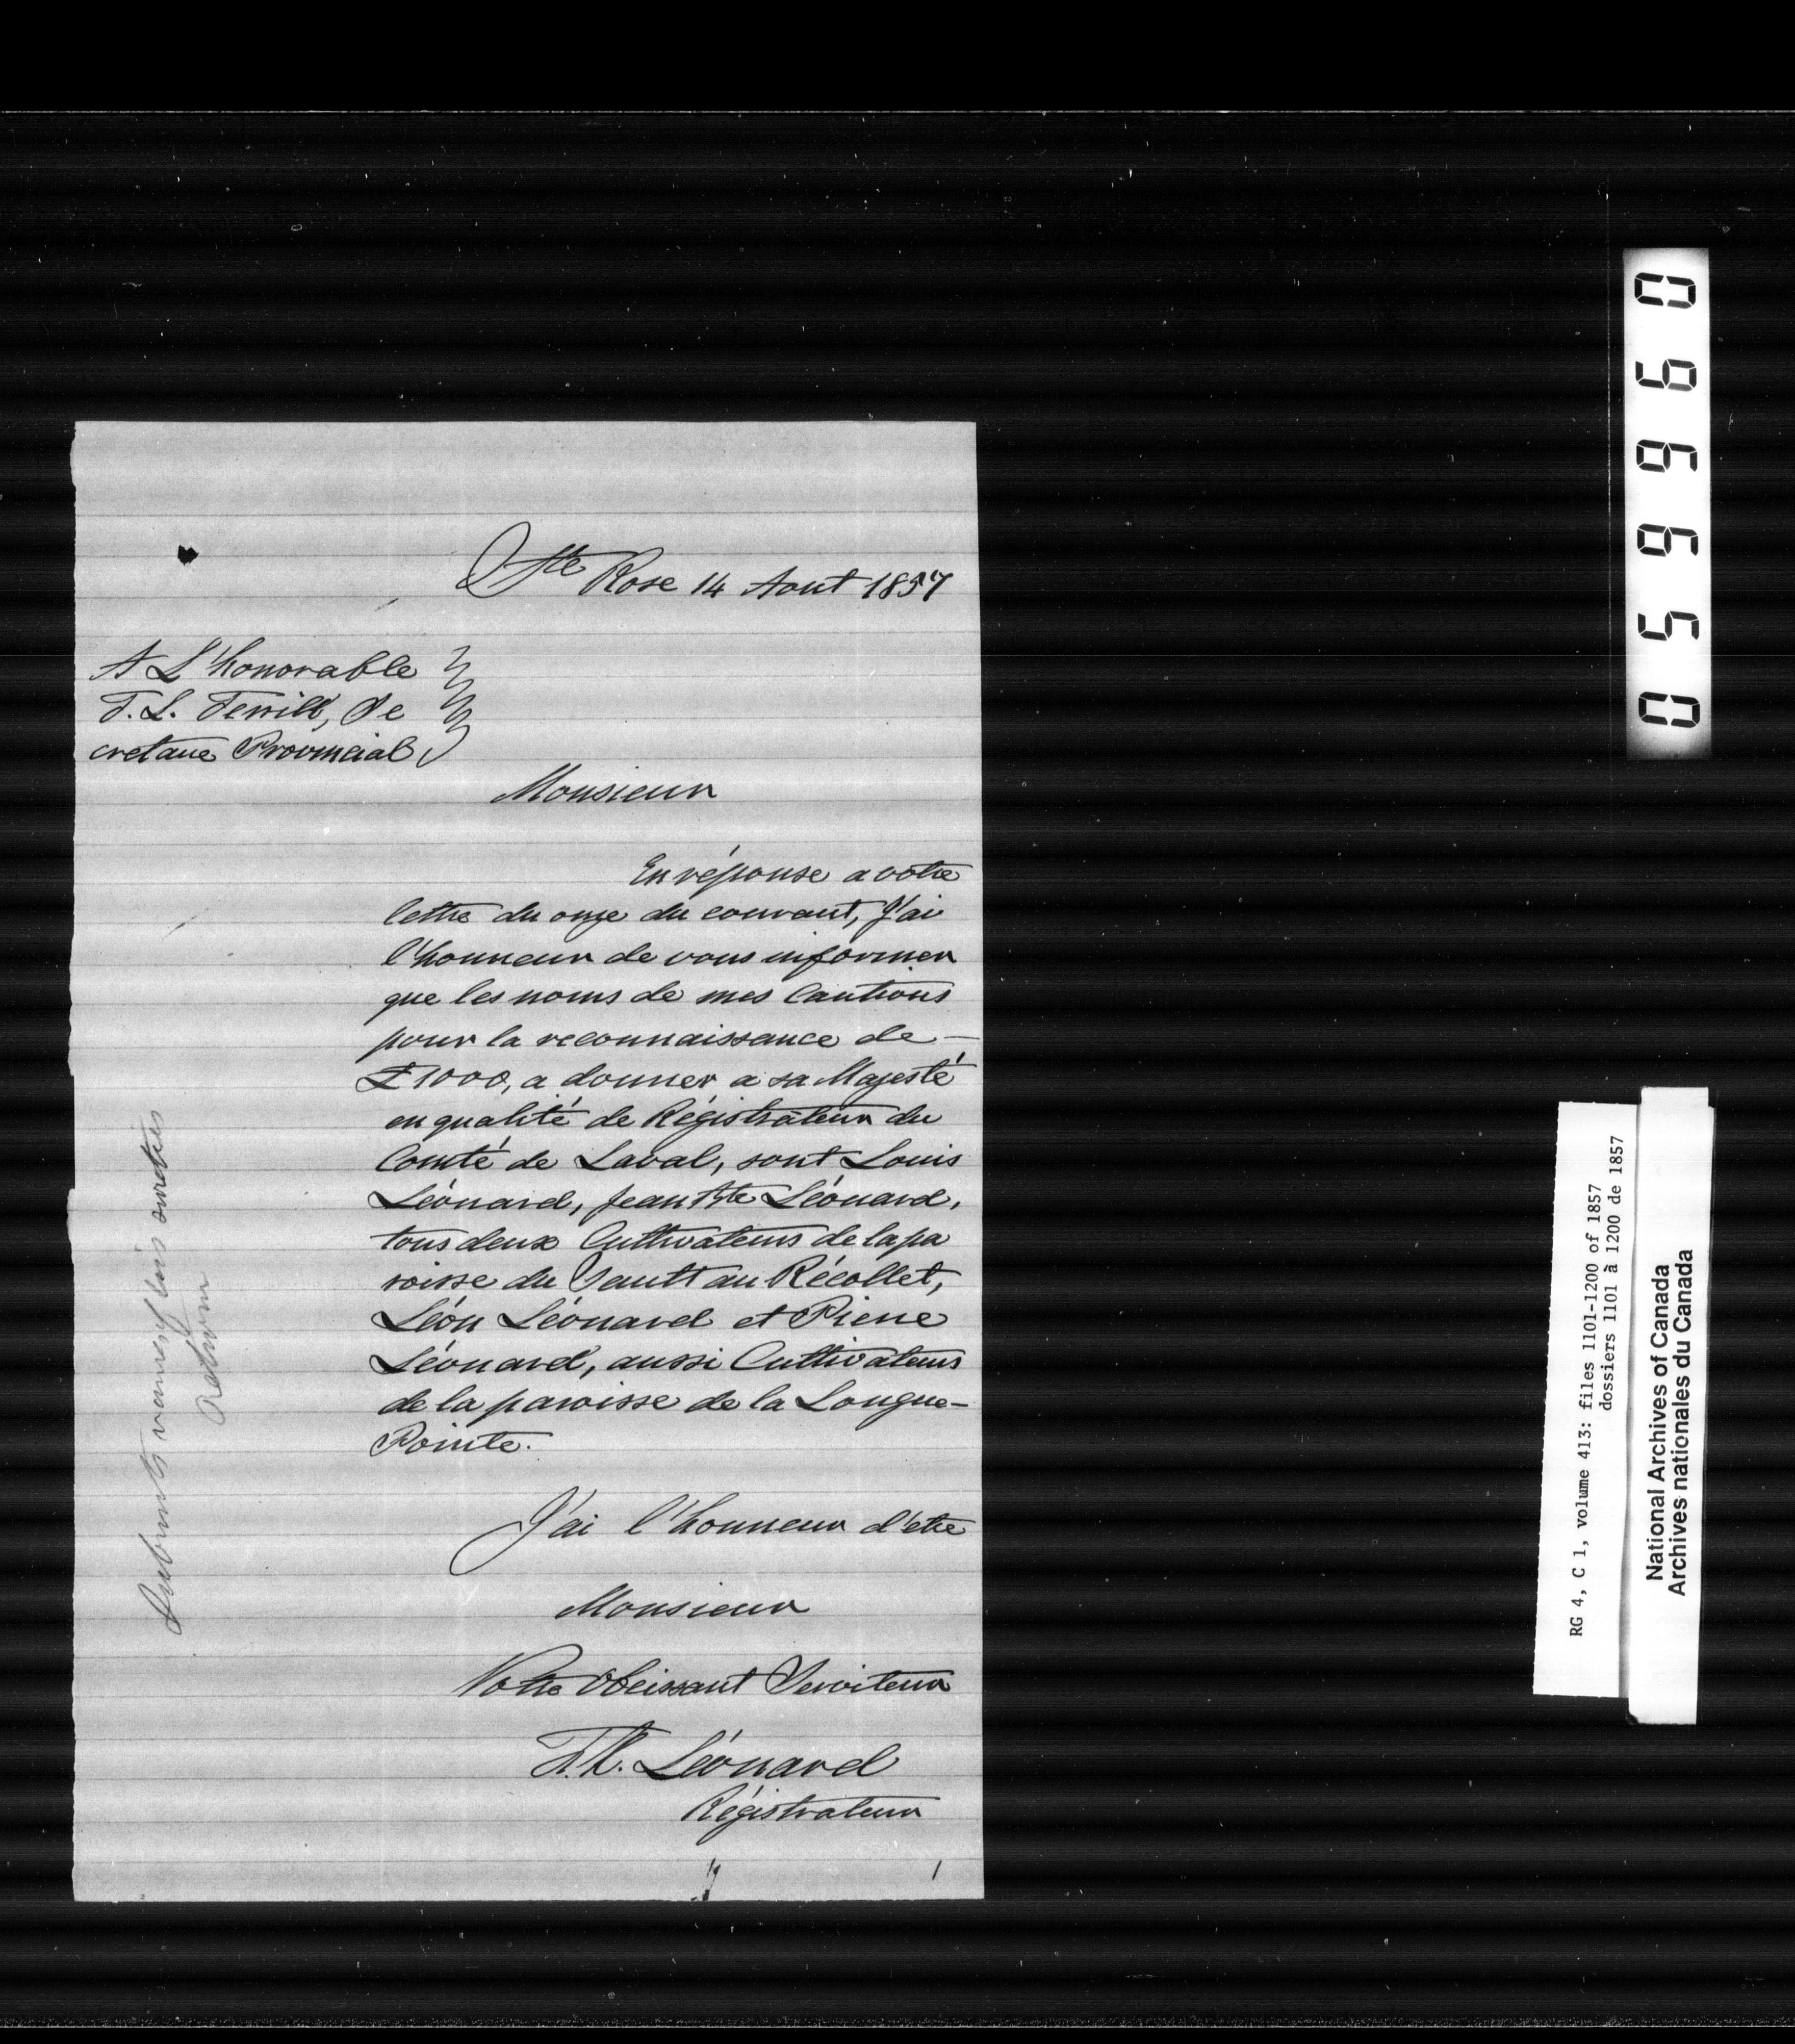 Ste Rose 14 Aout 1857
A L'honorable
T. L. Terrill, Se
cretaire Provincial
Monsieur
En réponse a votre
lettre du onze du courant, J'ai
l'honneur de vous informer
que les noms de mes Cautions
pour la reconnaissance de —
£1000, a donner a sa Majesté
en qualité de Régistrateur du
Comté de Laval, sont Louis
Léonard, Jean Bte Léonard,
tous deux Cultivateurs de la pa
roisse du Sault au Récollet,
Léon Léonard et Pierre
Léonard, aussi Cultivateurs
de la paroisse de la Longue-
Pointe.
J'ai l'honneur d'etre
Monsieur
Votre Obeissant Serviteur
Léonard
Régistrateur
Submits names of his sureties
0 5 9 6 6 9 0
RG 4, C 1, volume 413: files 1101-1200 of 1857
dossiers 1101 à 1200 de 1857
National Archives of Canada
Archives nationales du Canada